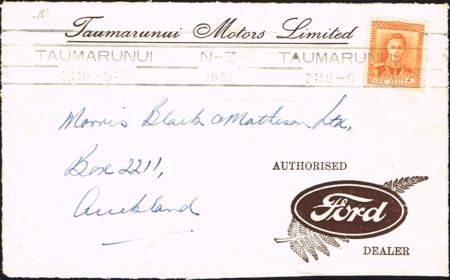 .10
Taumarunui Motors Limited
TAUMARUNUI N-Z TAUMARUNUI N
1951
NEW ZEALAND
Morris Black & Matheson Ltd,
Box 2211,
Auckland
AUTHORISED
Ford
DEALER